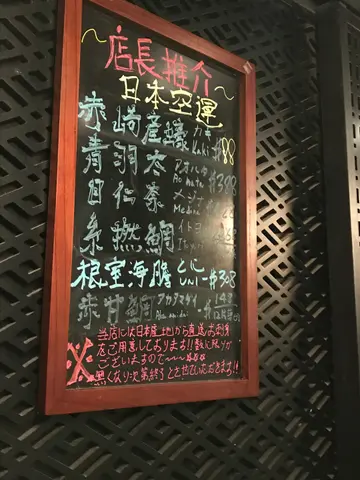 ~店長推介~
日本空運
赤崎産蠔 カキ Kaki $88
青羽太 アオハタ Aohata $388
目仁奈 メジナ Medina
糸撚鯛 イトヨ
根室海膽 ウニ UNI $308
赤甘鯛 アカアマダイ Aka amadai $148
※当店には日本産地から直送お刺身
をご用意しております!!数に限りが
ございますので〜〜
無くなり次第終了とさせていただきます!!